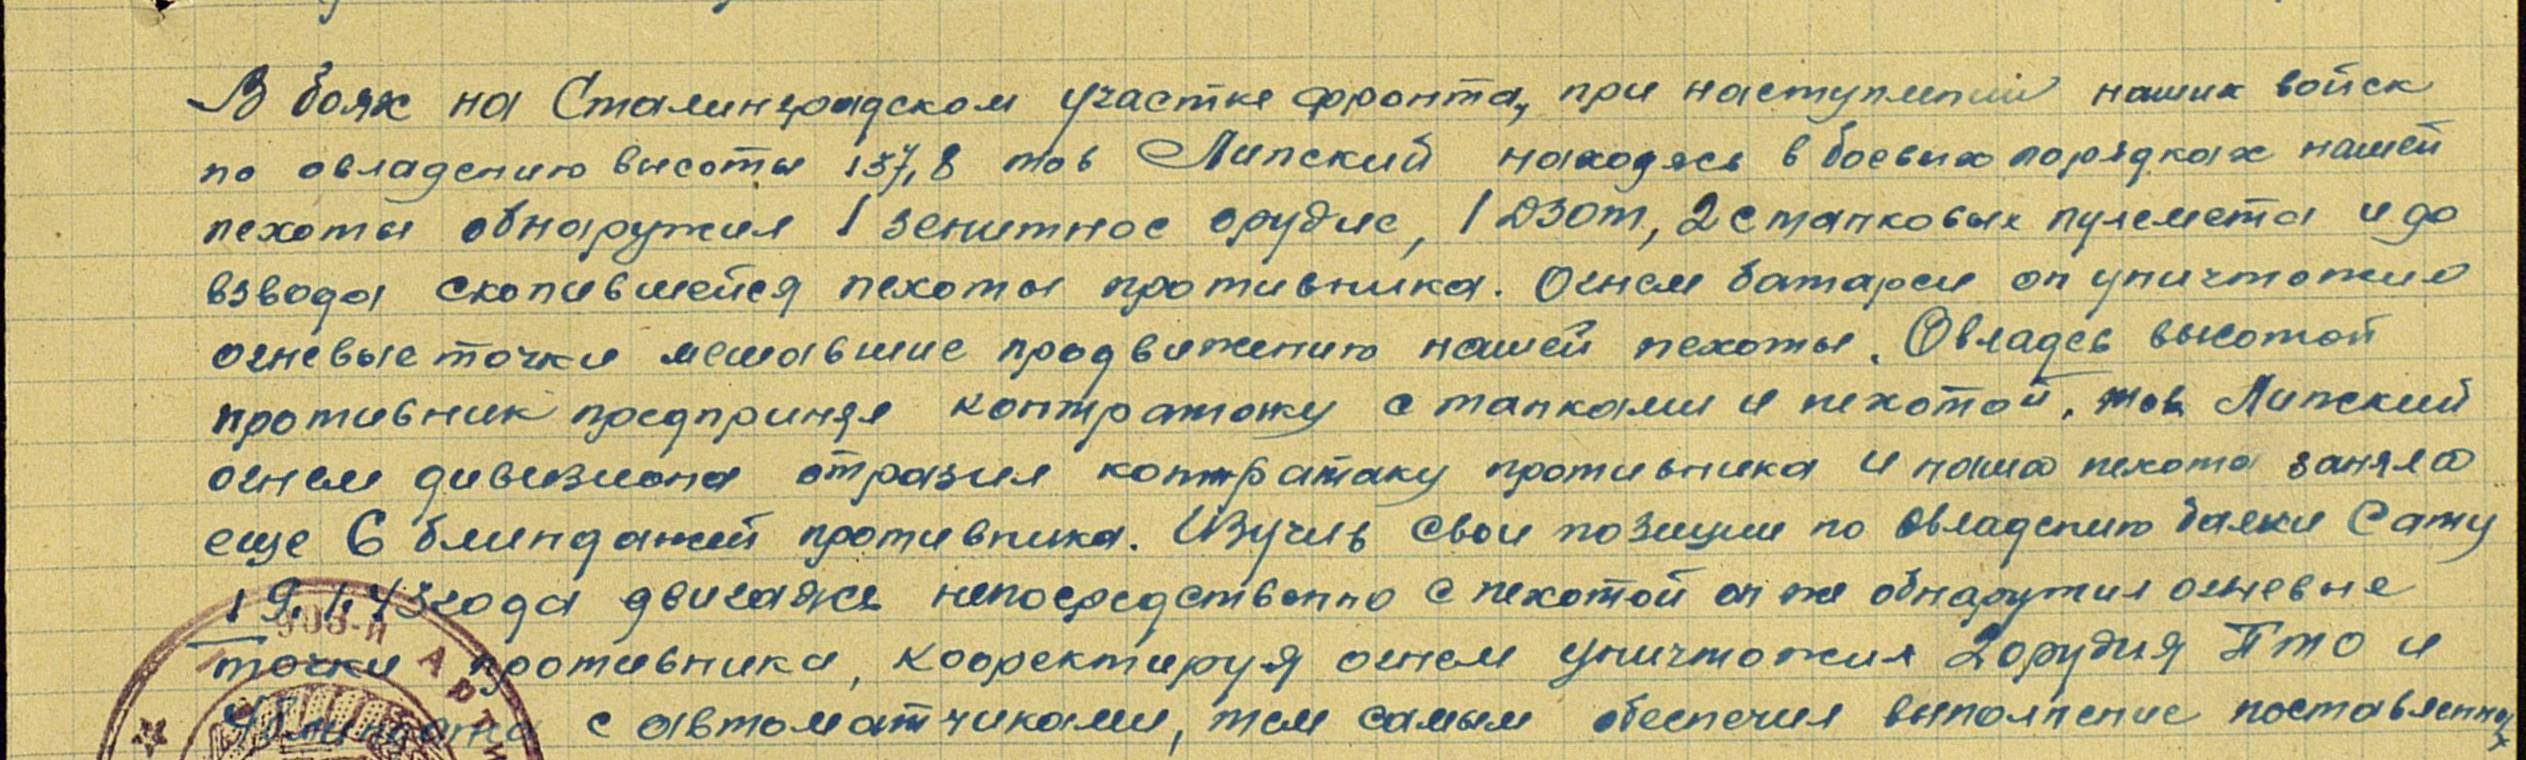 В боях на Сталинградском участке фронта, при наступлении наших войск
по овладению высоты 137,8 тов Липский находясь в боевых порядках нашей
пехоты обнаружил 1 зенитное орудие, 1 ДЗОТ, 2 станковых пулемета и до
взвода скопившейся пехоты противника. Огнем батареи он уничтожил
огневые точки мешавшие продвижению нашей пехоты. Овладев высотой
противник предпринял контратаку с танками и пехотой, тов Липский
огнем дивизиона отразил контратаку противника и наша пехота заняла
еще 6 блиндажей противника. Изучив свои позиции по овладению балки
19.1.43 года двигаясь непосредственно с пехотой он же обнаружил огневые
точки противника, кооректируя огнем уничтожил 2 орудия ПТО и
4 блиндажа с автоматчиками, тем самым обеспечил выполнение поставленных
908-й АРТИ